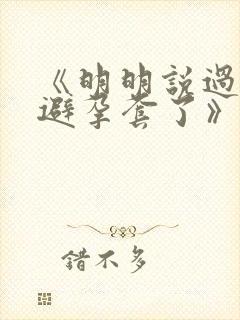 《明明説過
避孕套了》
錯不多